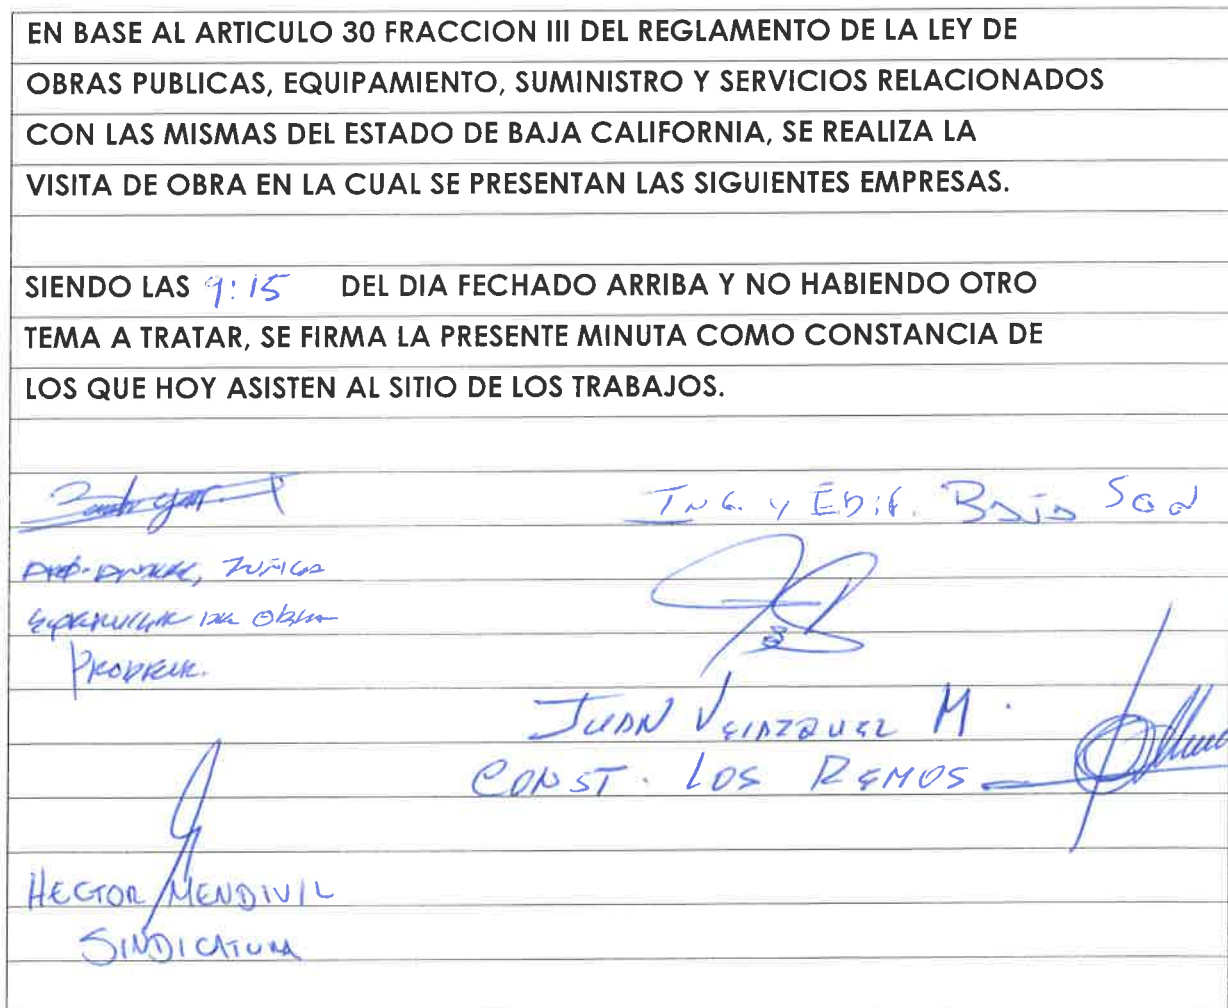 EN BASE AL ARTICULO 30 FRACCION III DEL REGLAMENTO DE LA LEY DE
OBRAS PUBLICAS, EQUIPAMIENTO, SUMINISTRO Y SERVICIOS RELACIONADOS
CON LAS MISMAS DEL ESTADO DE BAJA CALIFORNIA, SE REALIZA LA
VISITA DE OBRA EN LA CUAL SE PRESENTAN LAS SIGUIENTES EMPRESAS.
SIENDO LAS 9:15 DEL DIA FECHADO ARRIBA Y NO HABIENDO OTRO
TEMA A TRATAR, SE FIRMA LA PRESENTE MINUTA COMO CONSTANCIA DE
LOS QUE HOY ASISTEN AL SITIO DE LOS TRABAJOS.
ING. Y EDIF. BAJA SON
ZUÑIGA
DE OBRA
JUAN VELAZQUEZ M.
CONST. LOS REMOS
HECTOR MENDIVIL
SINDICATURA